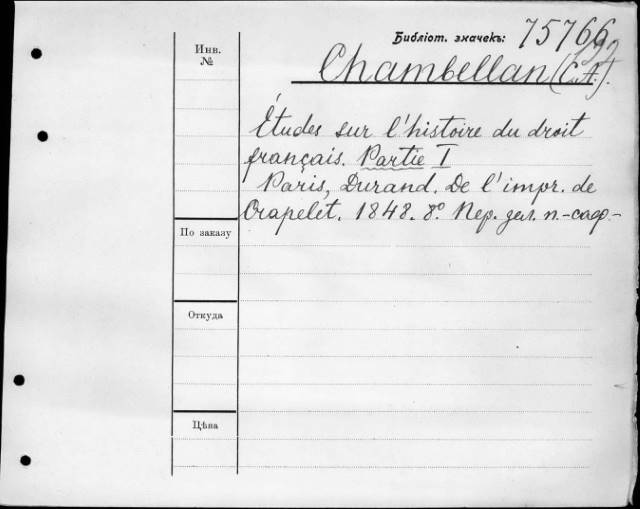 Библіот. значекъ: 75766
192
Инв.
№
Chambellan (C.A.).
Études sur l'histoire du droit
français. Partie I
Paris, Durand. De l'impr. de
Crapelet. 1848. 8º. Пер. зел. п.-саф-
По заказу
Откуда
Цѣна